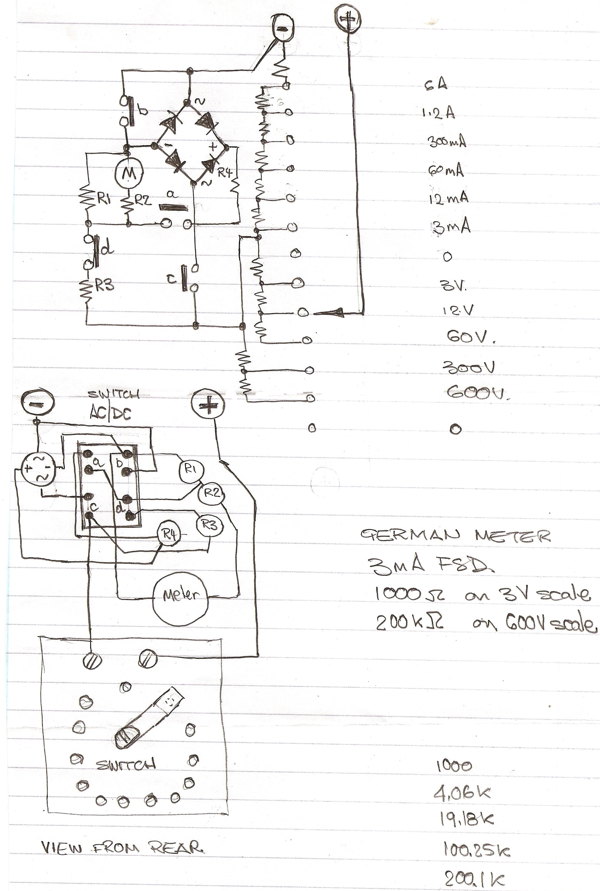 - +
b
~
- +
M
a
R4
R1 R2
~
d
c
R3
6A
1.2A
300mA
60mA
12mA
3mA
0
3V.
12V
60V.
300V
600V.
- SWITCH +
AC/DC
~
+ -
~
a b
R1
R2
c d
R3
R4
Meter
GERMAN METER
3mA FSD.
1000Ω on 3V scale
200kΩ on 600V scale
SWITCH
VIEW FROM REAR.
1000
4.06K
19.18K
100.25K
200.1K